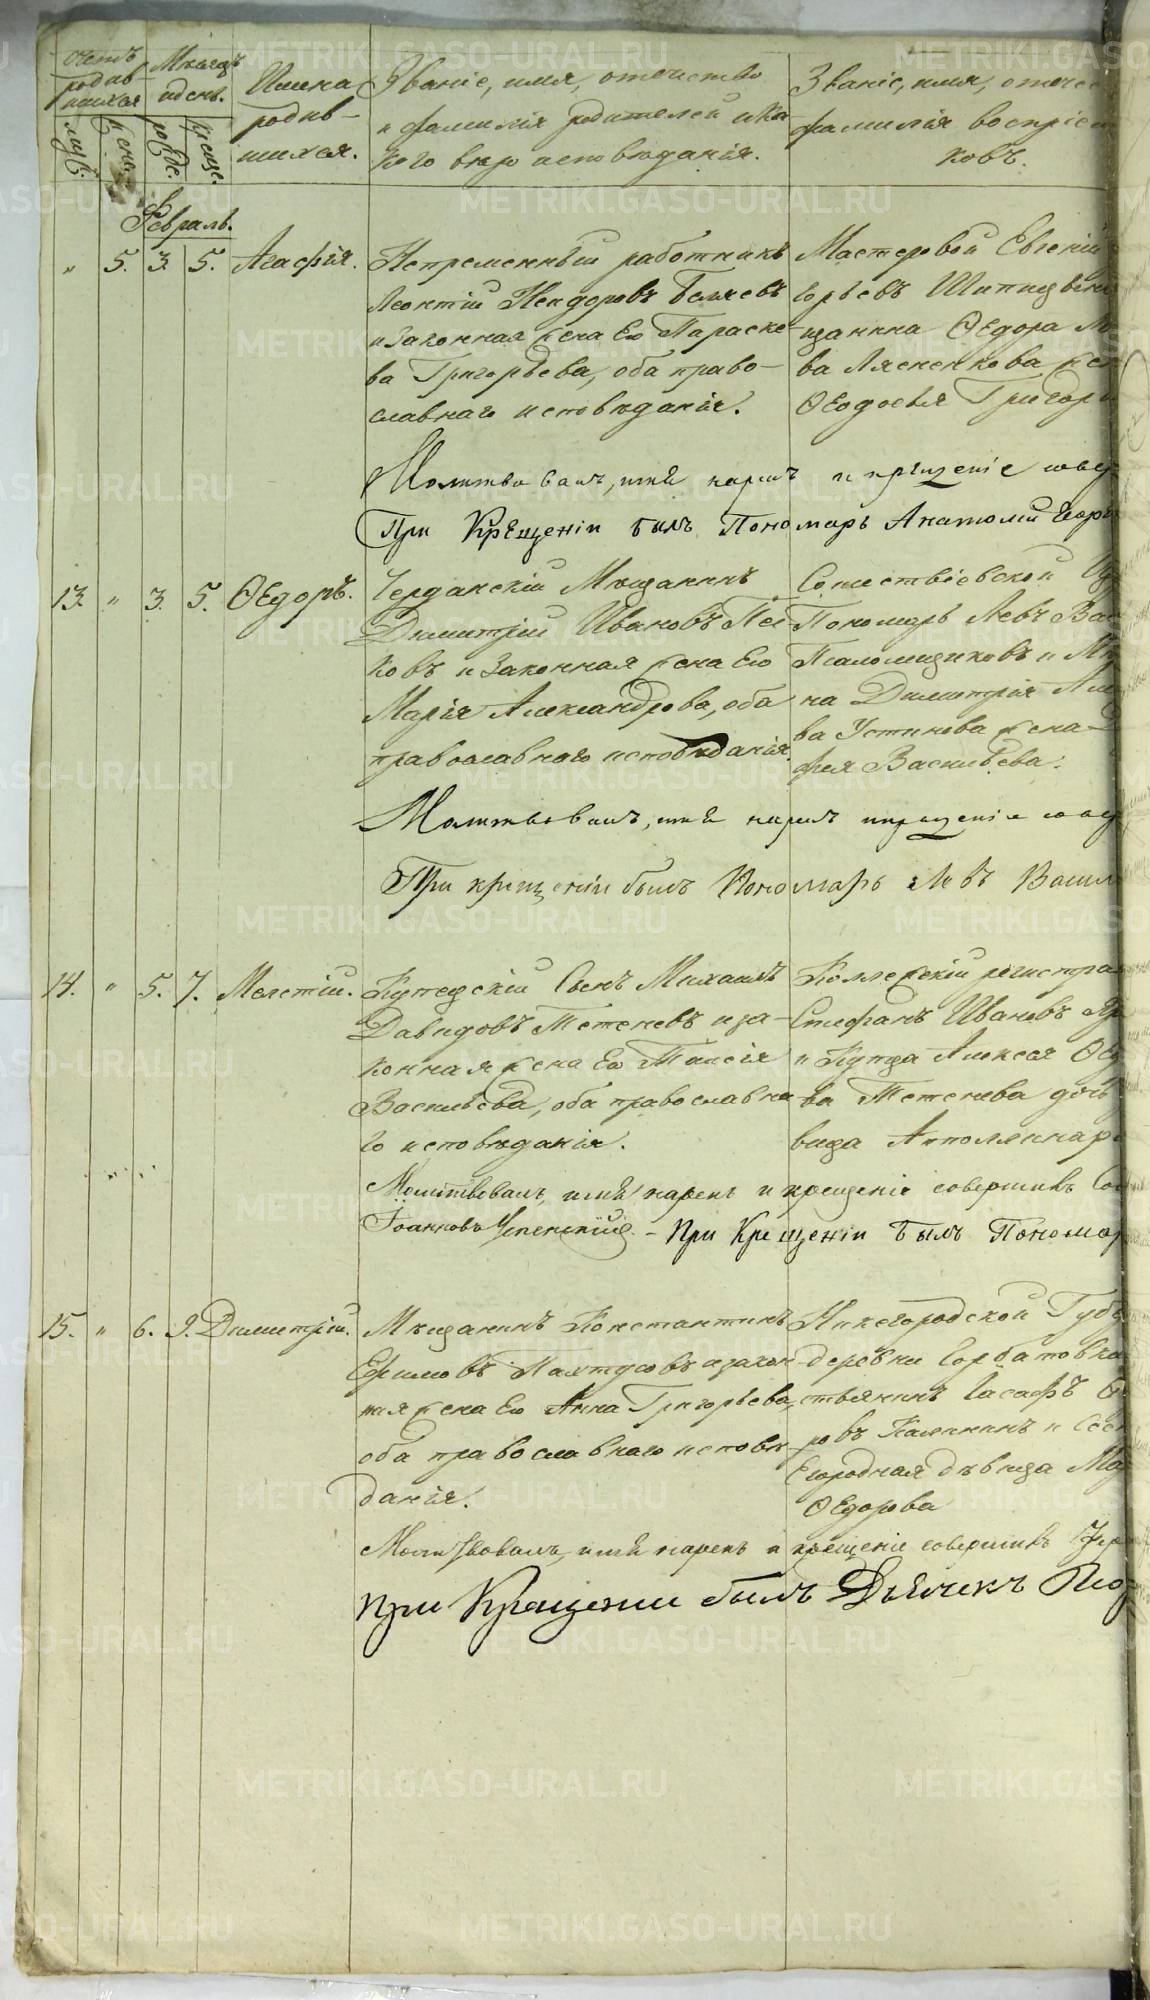 Счетъ родив-шихся
Мѣсяцъ и день.
Имена родив-шихся.
Званіе, имя, отчество и фамилія родителей и ка-кого вѣроисповѣданія.
Званіе, имя, отчес
фамилія воспріем
ковъ.
муж.
жен.
рожд.
крещ.
Февраль.
" 5. 3. 5. Агафія.
Непременный работникъ
Леонтій Никифоровъ Беляевъ
и законная жена Его Параске-
ва Григорьева, оба право-
славнаго исповѣданія.
Мастеровой Евгеній
горьевъ Шипицын
щанина Ѳедора
ва Лясненкова жен
Ѳеодосья Григор
Молитвовалъ, имя нарекъ и крещеніе сове
При Крещеніи былъ Пономарь Анатолій Геор
13. " 3. 5. Ѳедоръ.
Чердынскій Мѣщанинъ
Димитрій Ивановъ
ковъ и законная жена Его
Марія Александрова, оба
православнаго исповѣданія.
Сошествіевской
Пономарь Левъ Вас
Псаломщиковъ и Мѣ
на Димитрія Але
ва Устинова жена
фія Васильева.
Молитвовалъ, имя нарекъ и крещеніе сове
При крещеніи былъ Пономарь Левъ Васил
14. " 5. 7. Мелетій.
Купеческій Сынъ Михаилъ
Давидовъ Тетеневъ и за-
конная жена Его Таисія
Васильева, оба православна-
го исповѣданія.
Коллежскій регистра
Стефанъ Ивановъ
и Купца Алексея Ѳед
ва Тетенева дочь
вица Апполлинар
Молитвовалъ, имя нарекъ и крещеніе совершилъ
Іоанновъ Успенскій. - При Крещеніи былъ Пономар
15. " 6. 9. Димитрій.
Мѣщанинъ Константинъ
Ефимовъ Пахтусовъ и закон-
ная жена Его Анна Григорьева,
оба православнаго исповѣ-
данія.
Нижегородской Губ
деревни Горбатовки
стьянинъ Іасафъ
ровъ Калининъ и
Егородная дѣвица Ма
Ѳедорова
Молитвовалъ, имя нарекъ и крещеніе совершилъ
При Крещении былъ Дьячекъ Геор
METRIKI.GASO-URAL.RU